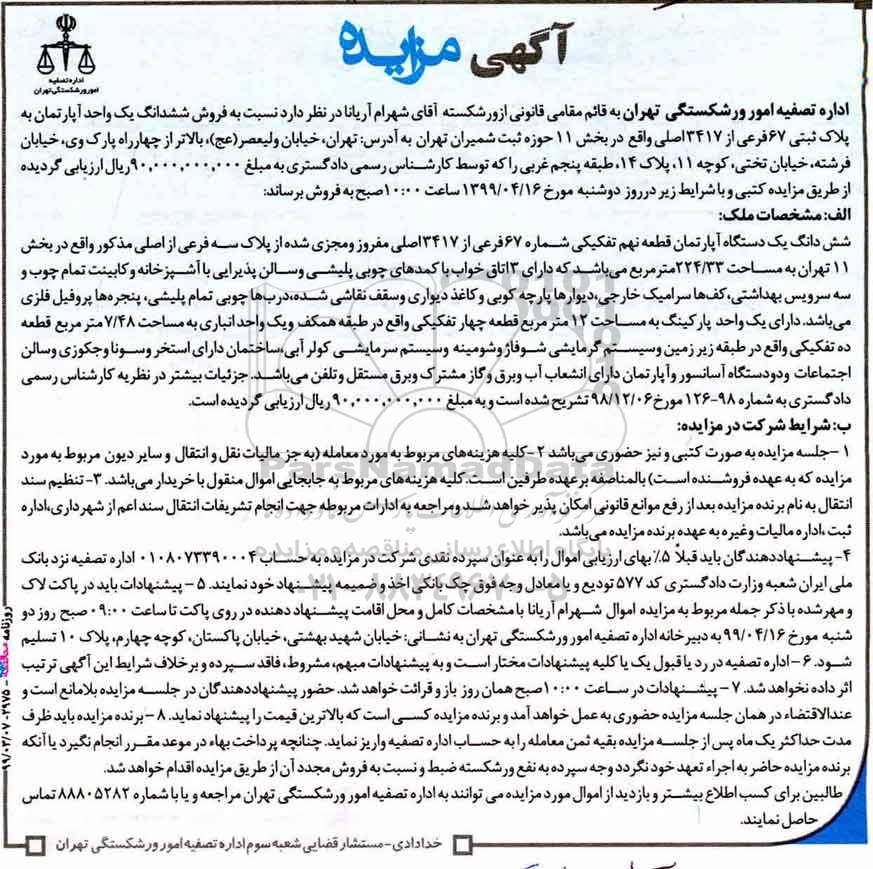 آگهی مزایده
اداره تصفیه
امور ورشکستگی تهران
اداره تصفیه امور ورشکستگی تهران به قائم مقامی قانونی از ورشکسته آقای شهرام آریانا در نظر دارد نسبت به فروش ششدانگ یک واحد آپارتمان به
پلاک ثبتی ۶۷فرعی از ۳۴۱۷اصلی واقع در بخش ۱۱ حوزه ثبت شمیران تهران به آدرس: تهران، خیابان ولیعصر(عج)، بالاتر از چهارراه پارک وی، خیابان
فرشته، خیابان تختی، کوچه ۱۱، پلاک ۱۴، طبقه پنجم غربی را که توسط کارشناس رسمی دادگستری به مبلغ ۹۰,۰۰۰,۰۰۰,۰۰۰ریال ارزیابی گردیده
از طریق مزایده کتبی و با شرایط زیر در روز دوشنبه مورخ ۱۳۹۹/۰۴/۱۶ ساعت ۱۰:۰۰صبح به فروش برساند:
الف: مشخصات ملک:
شش دانگ یک دستگاه آپارتمان قطعه نهم تفکیکی شماره ۶۷فرعی از ۳۴۱۷اصلی مفروز و مجزی شده از پلاک سه فرعی از اصلی مذکور واقع در بخش
۱۱ تهران به مساحت ۲۲۴/۳۳مترمربع می‌باشد که دارای ۳اتاق خواب با کمدهای چوبی پلیشی و سالن پذیرایی با آشپزخانه و کابینت تمام چوب و
سه سرویس بهداشتی، کف‌ها سرامیک خارجی، دیوارها پارچه کوبی و کاغذ دیواری و سقف نقاشی شده، درب‌ها چوبی تمام پلیشی، پنجره‌ها پروفیل فلزی
می‌باشد. دارای یک واحد پارکینگ به مساحت ۱۲ متر مربع قطعه چهار تفکیکی واقع در طبقه همکف و یک واحد انباری به مساحت ۷/۴۸متر مربع قطعه
ده تفکیکی واقع در طبقه زیر زمین و سیستم گرمایشی شوفاژ و شومینه وسیستم سرمایشی کولر آبی، ساختمان دارای استخر وسونا وجکوزی وسالن
اجتماعات ودودستگاه آسانسور وآپارتمان دارای انشعاب آب وبرق وگاز مشترک وبرق مستقل وتلفن می‌باشد. جزئیات بیشتر در نظریه کارشناس رسمی
دادگستری به شماره ۹۸-۱۲۶ مورخ ۹۸/۱۲/۰۶ تشریح شده است و به مبلغ ۹۰,۰۰۰,۰۰۰,۰۰۰ ریال ارزیابی گردیده است.
ب: شرایط شرکت در مزایده:
۱ – جلسه مزایده به صورت کتبی و نیز حضوری می‌باشد ۲ – کلیه هزینه‌های مربوط به مورد معامله (به جز مالیات نقل و انتقال و سایر دیون مربوط به مورد
مزایده که به عهده فروشنده است) بالمناصفه بر عهده طرفین است. کلیه هزینه‌های مربوط به جابجایی اموال منقول با خریدار می‌باشد. ۳- تنظیم سند
انتقال به نام برنده مزایده بعد از رفع موانع قانونی امکان پذیر خواهد شد و مراجعه به ادارات مربوطه جهت انجام تشریفات انتقال سند اعم از شهرداری، اداره
ثبت ، اداره مالیات و غیره به عهده برنده مزایده می‌باشد.
۴- پیشنهاددهندگان باید قبلاً ۵٪ بهای ارزیابی اموال را به عنوان سپرده نقدی شرکت در مزایده به حساب ۰۱۰۸۰۷۳۳۹۰۰۰۴ اداره تصفیه نزد بانک
ملی ایران شعبه وزارت دادگستری کد ۵۷۷ تودیع و یا معادل وجه فوق چک بانکی اخذ و ضمیمه پیشنهاد خود نمایند. ۵ – پیشنهادات باید در پاکت لاک
و مهر شده با ذکر جمله مربوط به مزایده اموال شهرام آریانا با مشخصات کامل و محل اقامت پیشنهاد دهنده در روی پاکت تا ساعت ۰۹:۰۰ صبح روز دو
شنبه مورخ ۹۹/۰۴/۱۶ به دبیرخانه اداره تصفیه امور ورشکستگی تهران به نشانی: خیابان شهید بهشتی، خیابان پاکستان، کوچه چهارم، پلاک ۱۰ تسلیم
شود. ۶ – اداره تصفیه در رد یا قبول یک یا کلیه پیشنهادات مختار است و به پیشنهادات مبهم، مشروط، فاقد سپرده و برخلاف شرایط این آگهی ترتیب
اثر داده نخواهد شد. ۷ – پیشنهادات در ساعت ۱۰:۰۰صبح همان روز باز و قرائت خواهد شد. حضور پیشنهاددهندگان در جلسه مزایده بلامانع است و
عندالاقتضاء در همان جلسه مزایده حضوری به عمل خواهد آمد و برنده مزایده کسی است که بالاترین قیمت را پیشنهاد نماید. ۸ – برنده مزایده باید ظرف
مدت حداکثر یک ماه پس از جلسه مزایده بقیه ثمن معامله را به حساب اداره تصفیه واریز نماید. چنانچه پرداخت بهاء در موعد مقرر انجام نگیرد یا آنکه
برنده مزایده حاضر به اجراء تعهد خود نگردد وجه سپرده به نفع ورشکسته ضبط و نسبت به فروش مجدد آن از طریق مزایده اقدام خواهد شد.
طالبین برای کسب اطلاع بیشتر و بازدید از اموال مورد مزایده می توانند به اداره تصفیه امور ورشکستگی تهران مراجعه و یا با شماره ۸۸۸۰۵۲۸۲ تماس
حاصل نمایند.
خدادادی-مستشار قضایی شعبه سوم اداره تصفیه امور ورشکستگی تهران
روزنامه
۹۹/۰۳/۰۷ - ۲۹۷۵
ParsNamadData
پایگاه اطلاع رسانی مناقصه و مزایده
۰۲۱-۸۸۳۴۹۶۷۰-۵